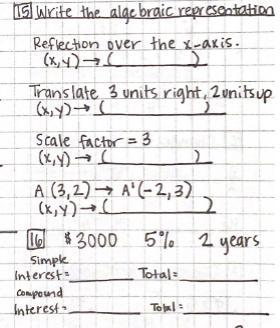 15 Write the algebraic representation
Reflection over the x-axis.
(x,y)→(__________)
Translate 3 units right, 2 units up
(x,y)→(__________)
Scale factor = 3
(x,y)→(__________)
A(3,2)→A'(-2,3)
(x,y)→(__________)
16 $3000 5% 2 years
Simple
Interest=________ Total=________
Compound
Interest=________ Total=________